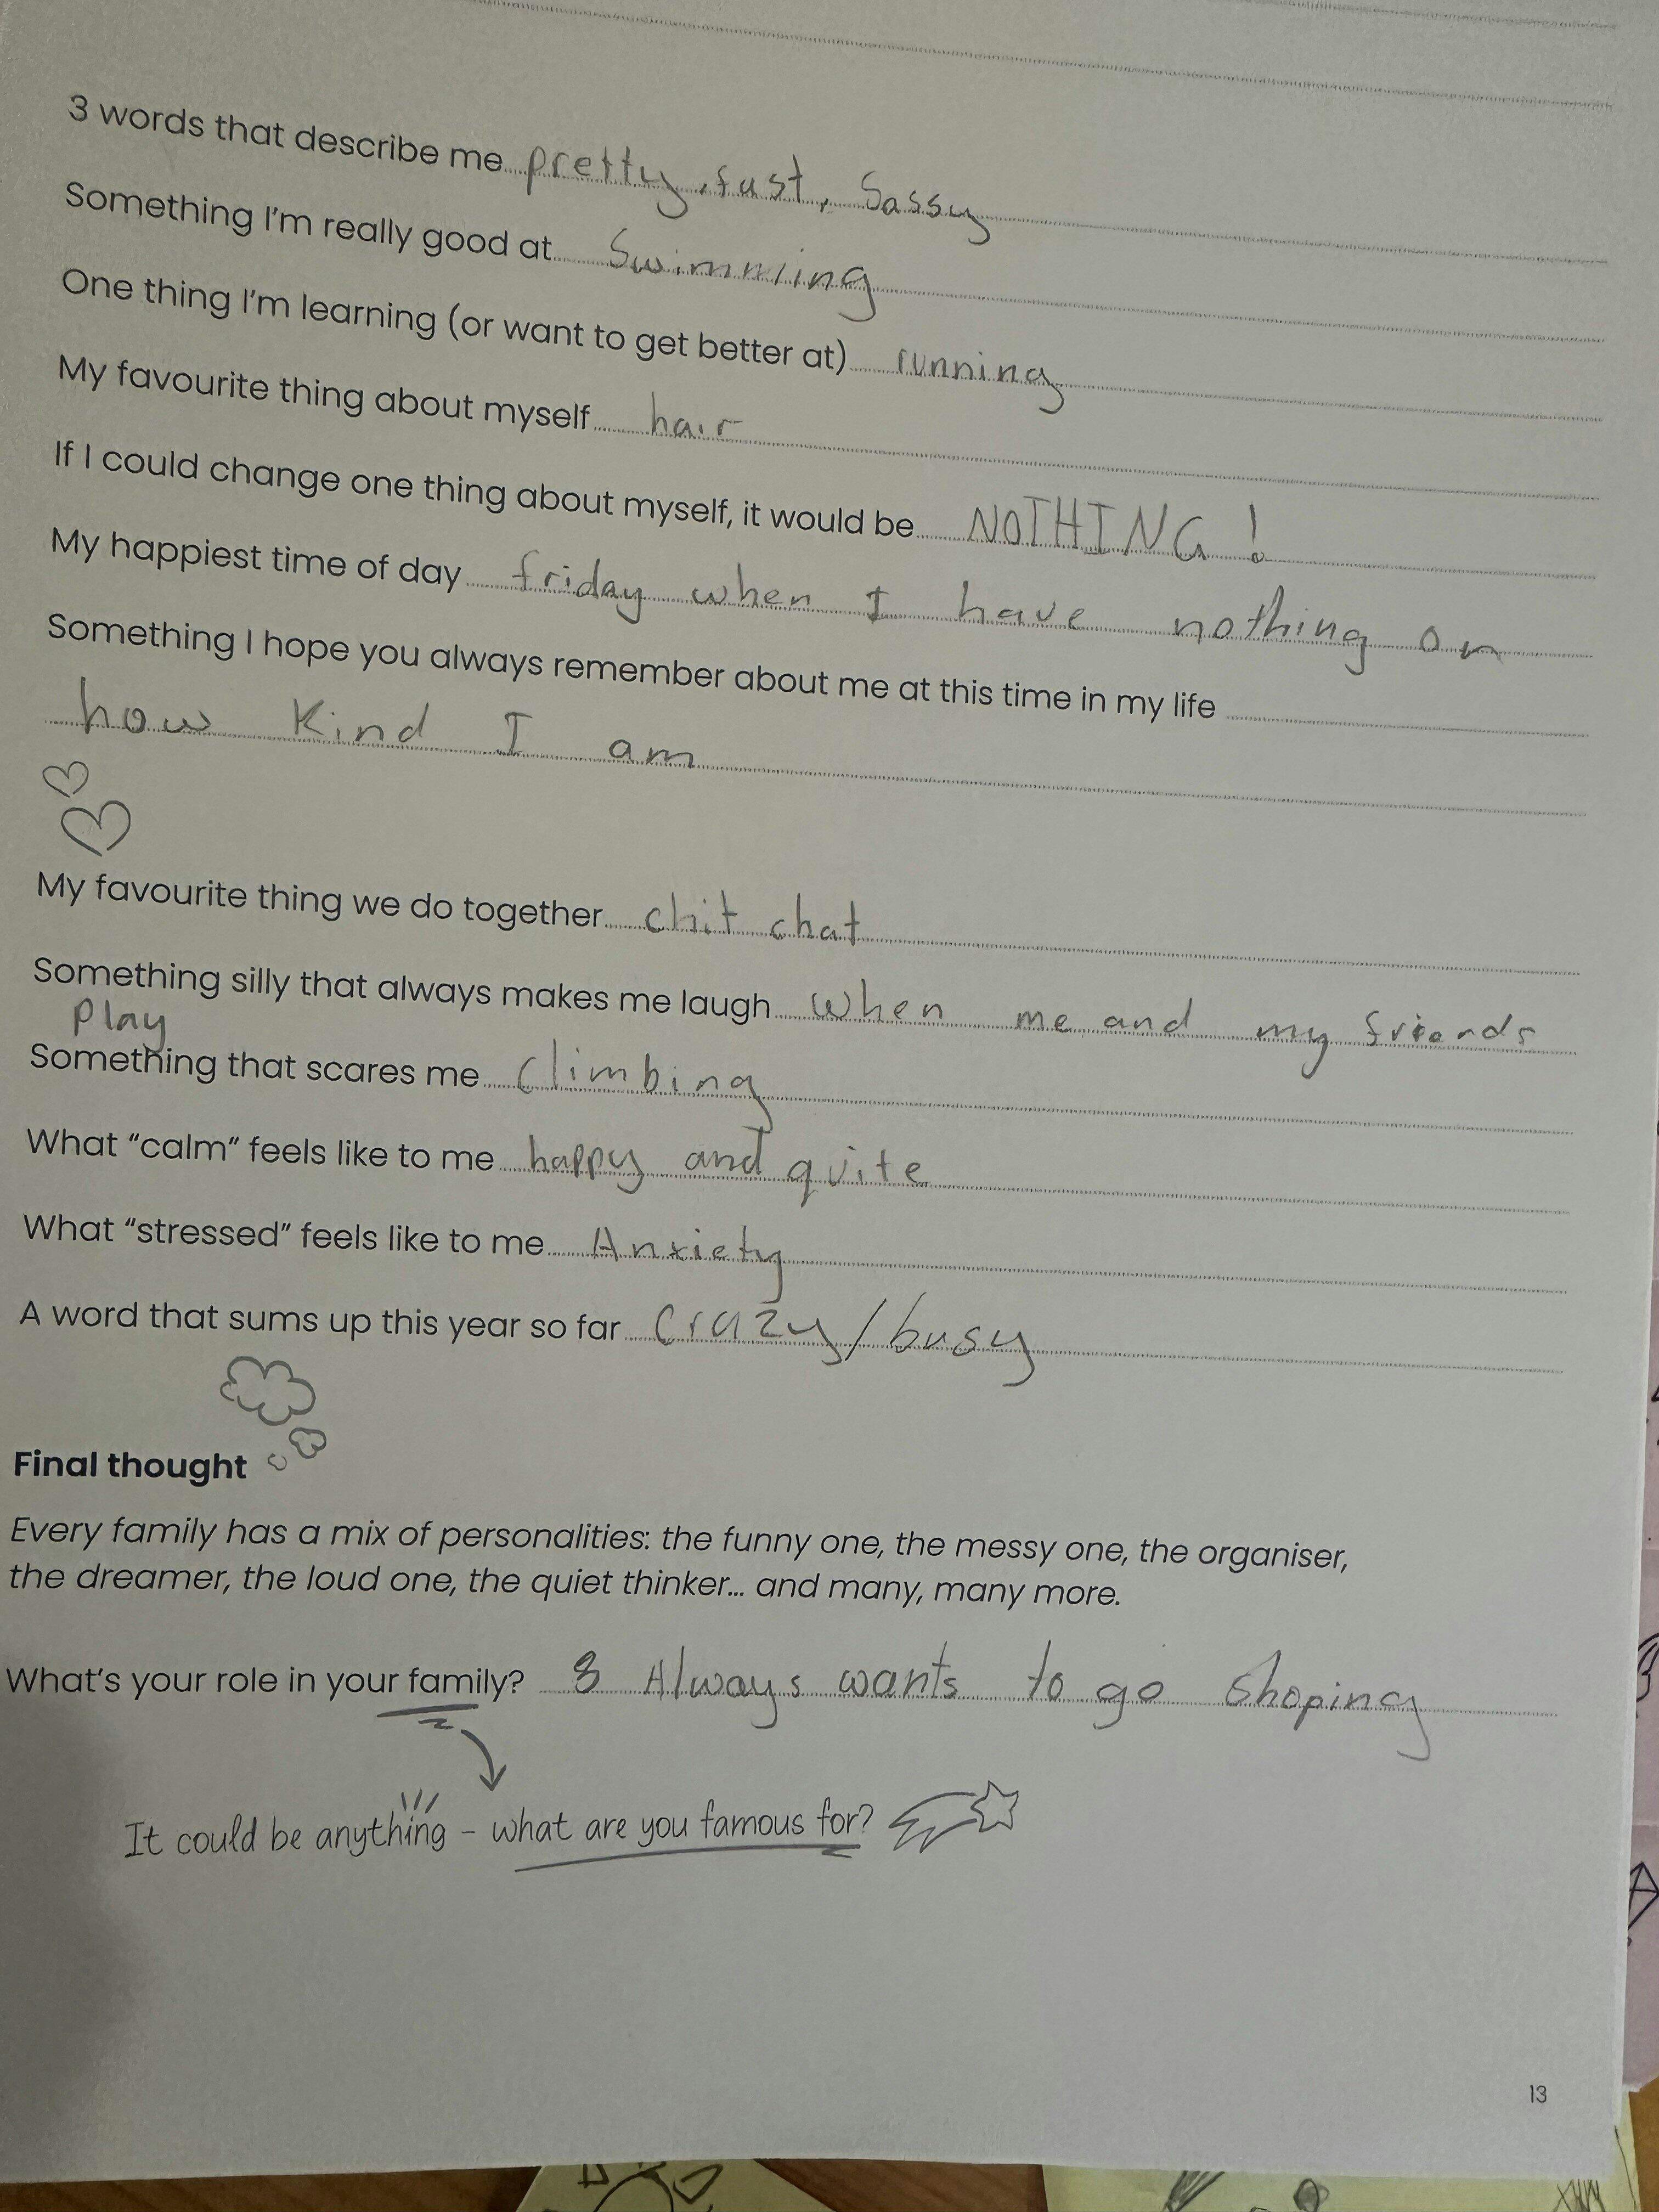 3 words that describe me pretty, fast, Sassy
Something I'm really good at Swimming
One thing I'm learning (or want to get better at) running
My favourite thing about myself hair
If I could change one thing about myself, it would be NOTHING!
My happiest time of day friday when I have nothing on
Something I hope you always remember about me at this time in my life
how kind I am
My favourite thing we do together chit chat
Something silly that always makes me laugh when me and my friends
play
Something that scares me climbing
What "calm" feels like to me happy and quite
What "stressed" feels like to me Anxiety
A word that sums up this year so far crazy/busy
Final thought
Every family has a mix of personalities: the funny one, the messy one, the organiser,
the dreamer, the loud one, the quiet thinker... and many, many more.
What's your role in your family? Always wants to go shoping
It could be anything - what are you famous for?
13